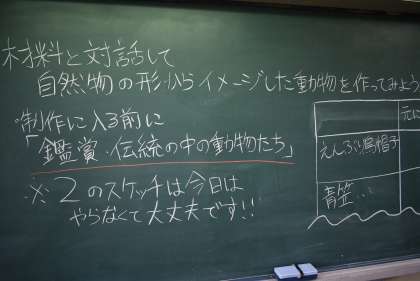 材料と対話して
自然物の形からイメージした動物を作ってみよう
・制作に入る前に
「鑑賞・伝統の中の動物たち」
※2のスケッチは今日は
やらなくて大丈夫です!!
元に
えんぶり烏帽子
青笠…